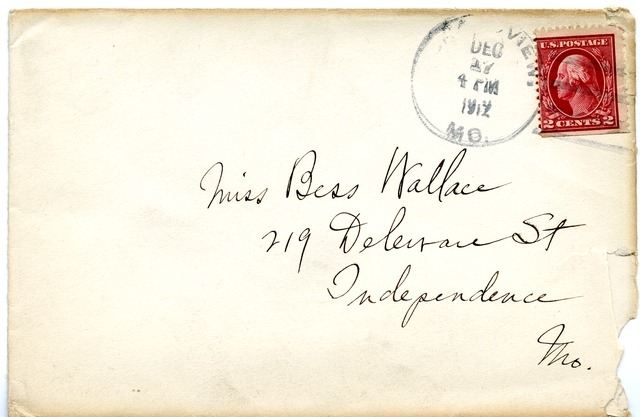 DEC
17
4 PM
1912
MO.
U.S. POSTAGE
2 CENTS 2
Miss Bess Wallace
219 Delaware St
Independence
Mo.